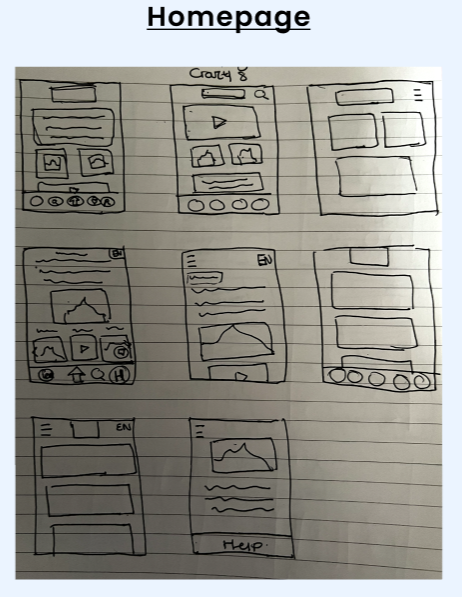 Homepage
Crazy 8
EN
EN
H
EN
Help